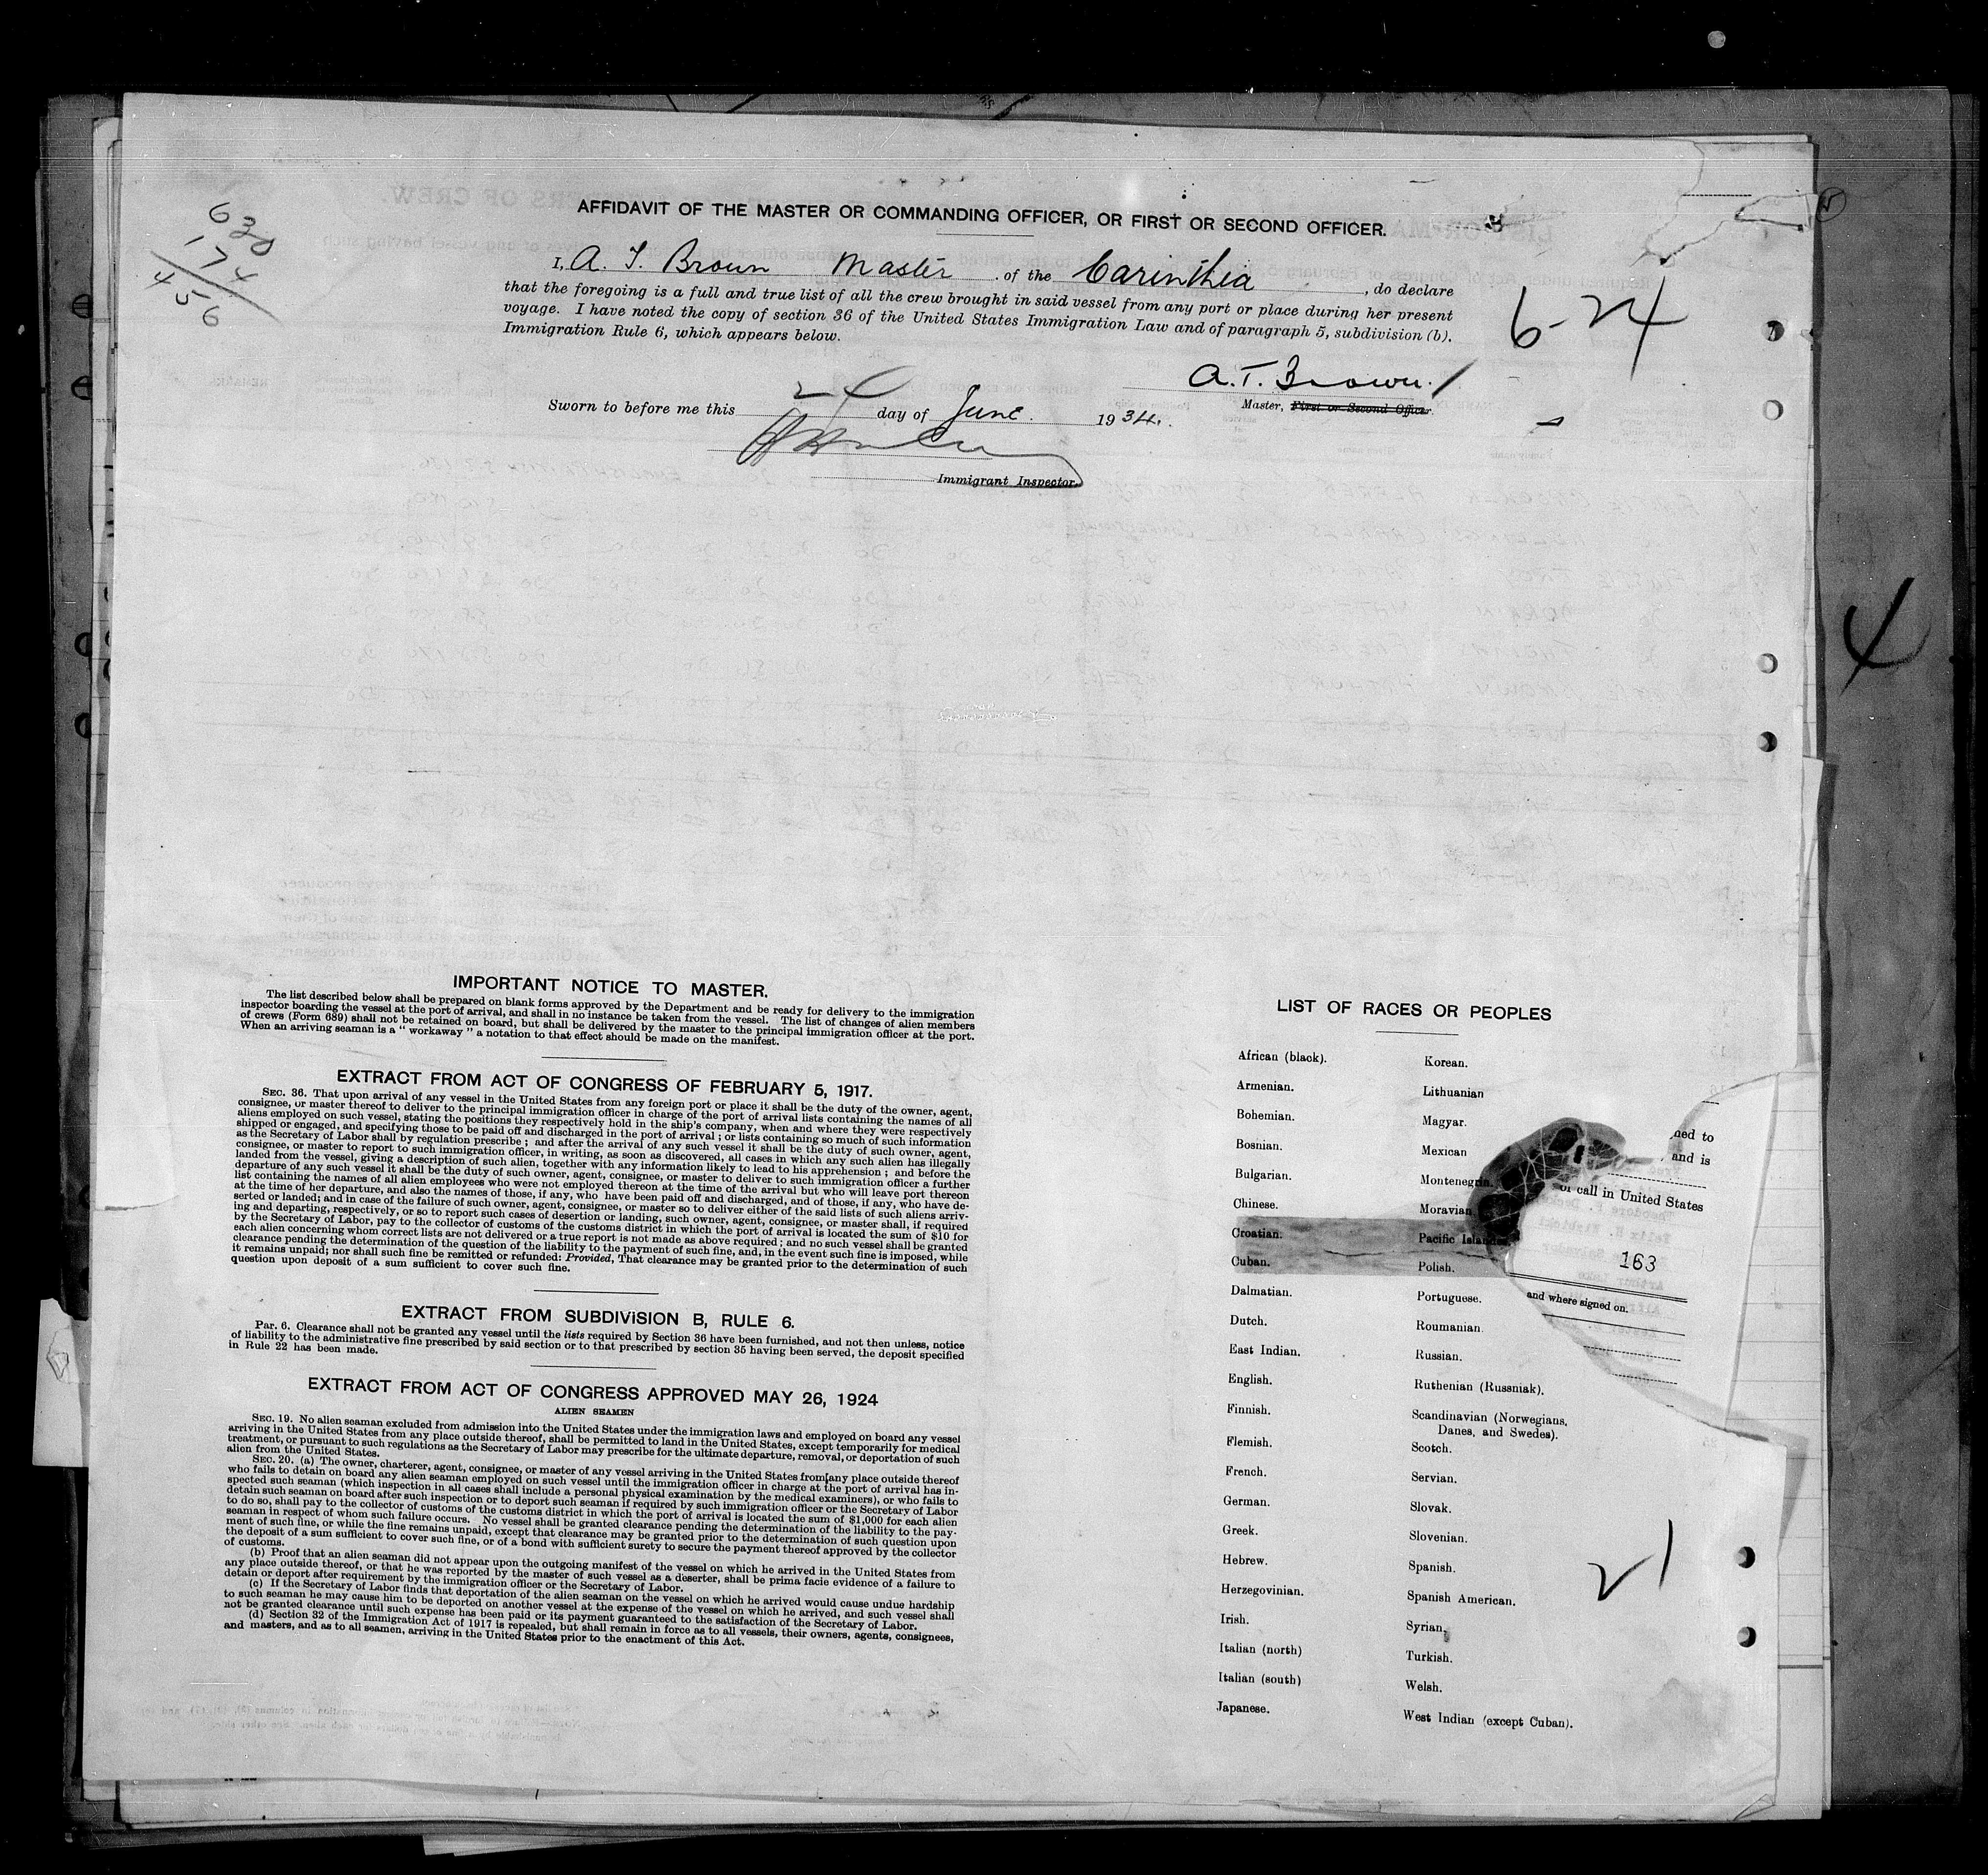 AFFIDAVIT OF THE MASTER OR COMMANDING OFFICER, OR FIRST OR SECOND OFFICER.
630
174
456
I, A. T. Brown Master of the Carinthia, do declare
that the foregoing is a full and true list of all the crew brought in said vessel from any port or place during her present
voyage. I have noted the copy of section 36 of the United States Immigration Law and of paragraph 5, subdivision (b).
Immigration Rule 6, which appears below.
6-24
A. T. Brown.
Master, First or Second Officer.
Sworn to before me this 24 day of June. 1934.
Immigrant Inspector.
4
IMPORTANT NOTICE TO MASTER.
The list described below shall be prepared on blank forms approved by the Department and be ready for delivery to the immigration
inspector boarding the vessel at the port of arrival, and shall in no instance be taken from the vessel. The list of changes of alien members
of crews (Form 689) shall not be retained on board, but shall be delivered by the master to the principal immigration officer at the port.
When an arriving seaman is a " workaway " a notation to that effect should be made on the manifest.
EXTRACT FROM ACT OF CONGRESS OF FEBRUARY 5, 1917.
SEC. 36. That upon arrival of any vessel in the United States from any foreign port or place it shall be the duty of the owner, agent,
consignee, or master thereof to deliver to the principal immigration officer in charge of the port of arrival lists containing the names of all
aliens employed on such vessel, stating the positions they respectively hold in the ship's company, when and where they were respectively
shipped or engaged, and specifying those to be paid off and discharged in the port of arrival ; or lists containing so much of such information
as the Secretary of Labor shall by regulation prescribe ; and after the arrival of any such vessel it shall be the duty of such owner, agent,
consignee, or master to report to such immigration officer, in writing, as soon as discovered, all cases in which any such alien has illegally
landed from the vessel, giving a description of such alien, together with any information likely to lead to his apprehension ; and before the
departure of any such vessel it shall be the duty of such owner, agent, consignee, or master to deliver to such immigration officer a further
list containing the names of all alien employees who were not employed thereon at the time of the arrival but who will leave port thereon
at the time of her departure, and also the names of those, if any, who have been paid off and discharged, and of those, if any, who have de-
serted or landed; and in case of the failure of such owner, agent, consignee, or master so to deliver either of the said lists of such aliens arriv-
ing and departing, respectively, or so to report such cases of desertion or landing, such owner, agent, consignee, or master shall, if required
by the Secretary of Labor, pay to the collector of customs of the customs district in which the port of arrival is located the sum of $10 for
each alien concerning whom correct lists are not delivered or a true report is not made as above required ; and no such vessel shall be granted
clearance pending the determination of the question of the liability to the payment of such fine, and, in the event such fine is imposed, while
it remains unpaid; nor shall such fine be remitted or refunded: Provided, That clearance may be granted prior to the determination of such
question upon deposit of a sum sufficient to cover such fine.
EXTRACT FROM SUBDIVISION B, RULE 6.
Par. 6. Clearance shall not be granted any vessel until the lists required by Section 36 have been furnished, and not then unless, notice
of liability to the administrative fine prescribed by said section or to that prescribed by section 35 having been served, the deposit specified
in Rule 22 has been made.
EXTRACT FROM ACT OF CONGRESS APPROVED MAY 26, 1924
ALIEN SEAMEN
SEC. 19. No alien seaman excluded from admission into the United States under the immigration laws and employed on board any vessel
arriving in the United States from any place outside thereof, shall be permitted to land in the United States, except temporarily for medical
treatment, or pursuant to such regulations as the Secretary of Labor may prescribe for the ultimate departure, removal, or deportation of such
alien from the United States.
SEC. 20. (a) The owner, charterer, agent, consignee, or master of any vessel arriving in the United States from any place outside thereof
who fails to detain on board any alien seaman employed on such vessel until the immigration officer in charge at the port of arrival has in-
spected such seaman (which inspection in all cases shall include a personal physical examination by the medical examiners), or who fails to
detain such seaman on board after such inspection or to deport such seaman if required by such immigration officer or the Secretary of Labor
to do so, shall pay to the collector of customs of the customs district in which the port of arrival is located the sum of $1,000 for each alien
seaman in respect of whom such failure occurs. No vessel shall be granted clearance pending the determination of the liability to the pay-
ment of such fine, or while the fine remains unpaid, except that clearance may be granted prior to the determination of such question upon
the deposit of a sum sufficient to cover such fine, or of a bond with sufficient surety to secure the payment thereof approved by the collector
of customs.
(b) Proof that an alien seaman did not appear upon the outgoing manifest of the vessel on which he arrived in the United States from
any place outside thereof, or that he was reported by the master of such vessel as a deserter, shall be prima facie evidence of a failure to
detain or deport after requirement by the immigration officer or the Secretary of Labor.
(c) If the Secretary of Labor finds that deportation of the alien seaman on the vessel on which he arrived would cause undue hardship
to such seaman he may cause him to be deported on another vessel at the expense of the vessel on which he arrived, and such vessel shall
not be granted clearance until such expense has been paid or its payment guaranteed to the satisfaction of the Secretary of Labor.
(d) Section 32 of the Immigration Act of 1917 is repealed, but shall remain in force as to all vessels, their owners, agents, consignees,
and masters, and as to all seamen, arriving in the United States prior to the enactment of this Act.
LIST OF RACES OR PEOPLES
African (black).
Armenian.
Bohemian.
Bosnian.
Bulgarian.
Chinese.
Croatian.
Cuban.
Dalmatian.
Dutch.
East Indian.
English.
Finnish.
Flemish.
French.
German.
Greek.
Hebrew.
Herzegovinian.
Irish.
Italian (north)
Italian (south)
Japanese.
Korean.
Lithuanian
Magyar.
Mexican
Montenegrin.
Moravian
Pacific Islander
Polish.
Portuguese.
Roumanian.
Russian.
Ruthenian (Russniak).
Scandinavian (Norwegians,
Danes, and Swedes).
Scotch.
Servian.
Slovak.
Slovenian.
Spanish.
Spanish American.
Syrian.
Turkish.
Welsh.
West Indian (except Cuban).
ned to
, and is
of call in United States
163
and where signed on.
21